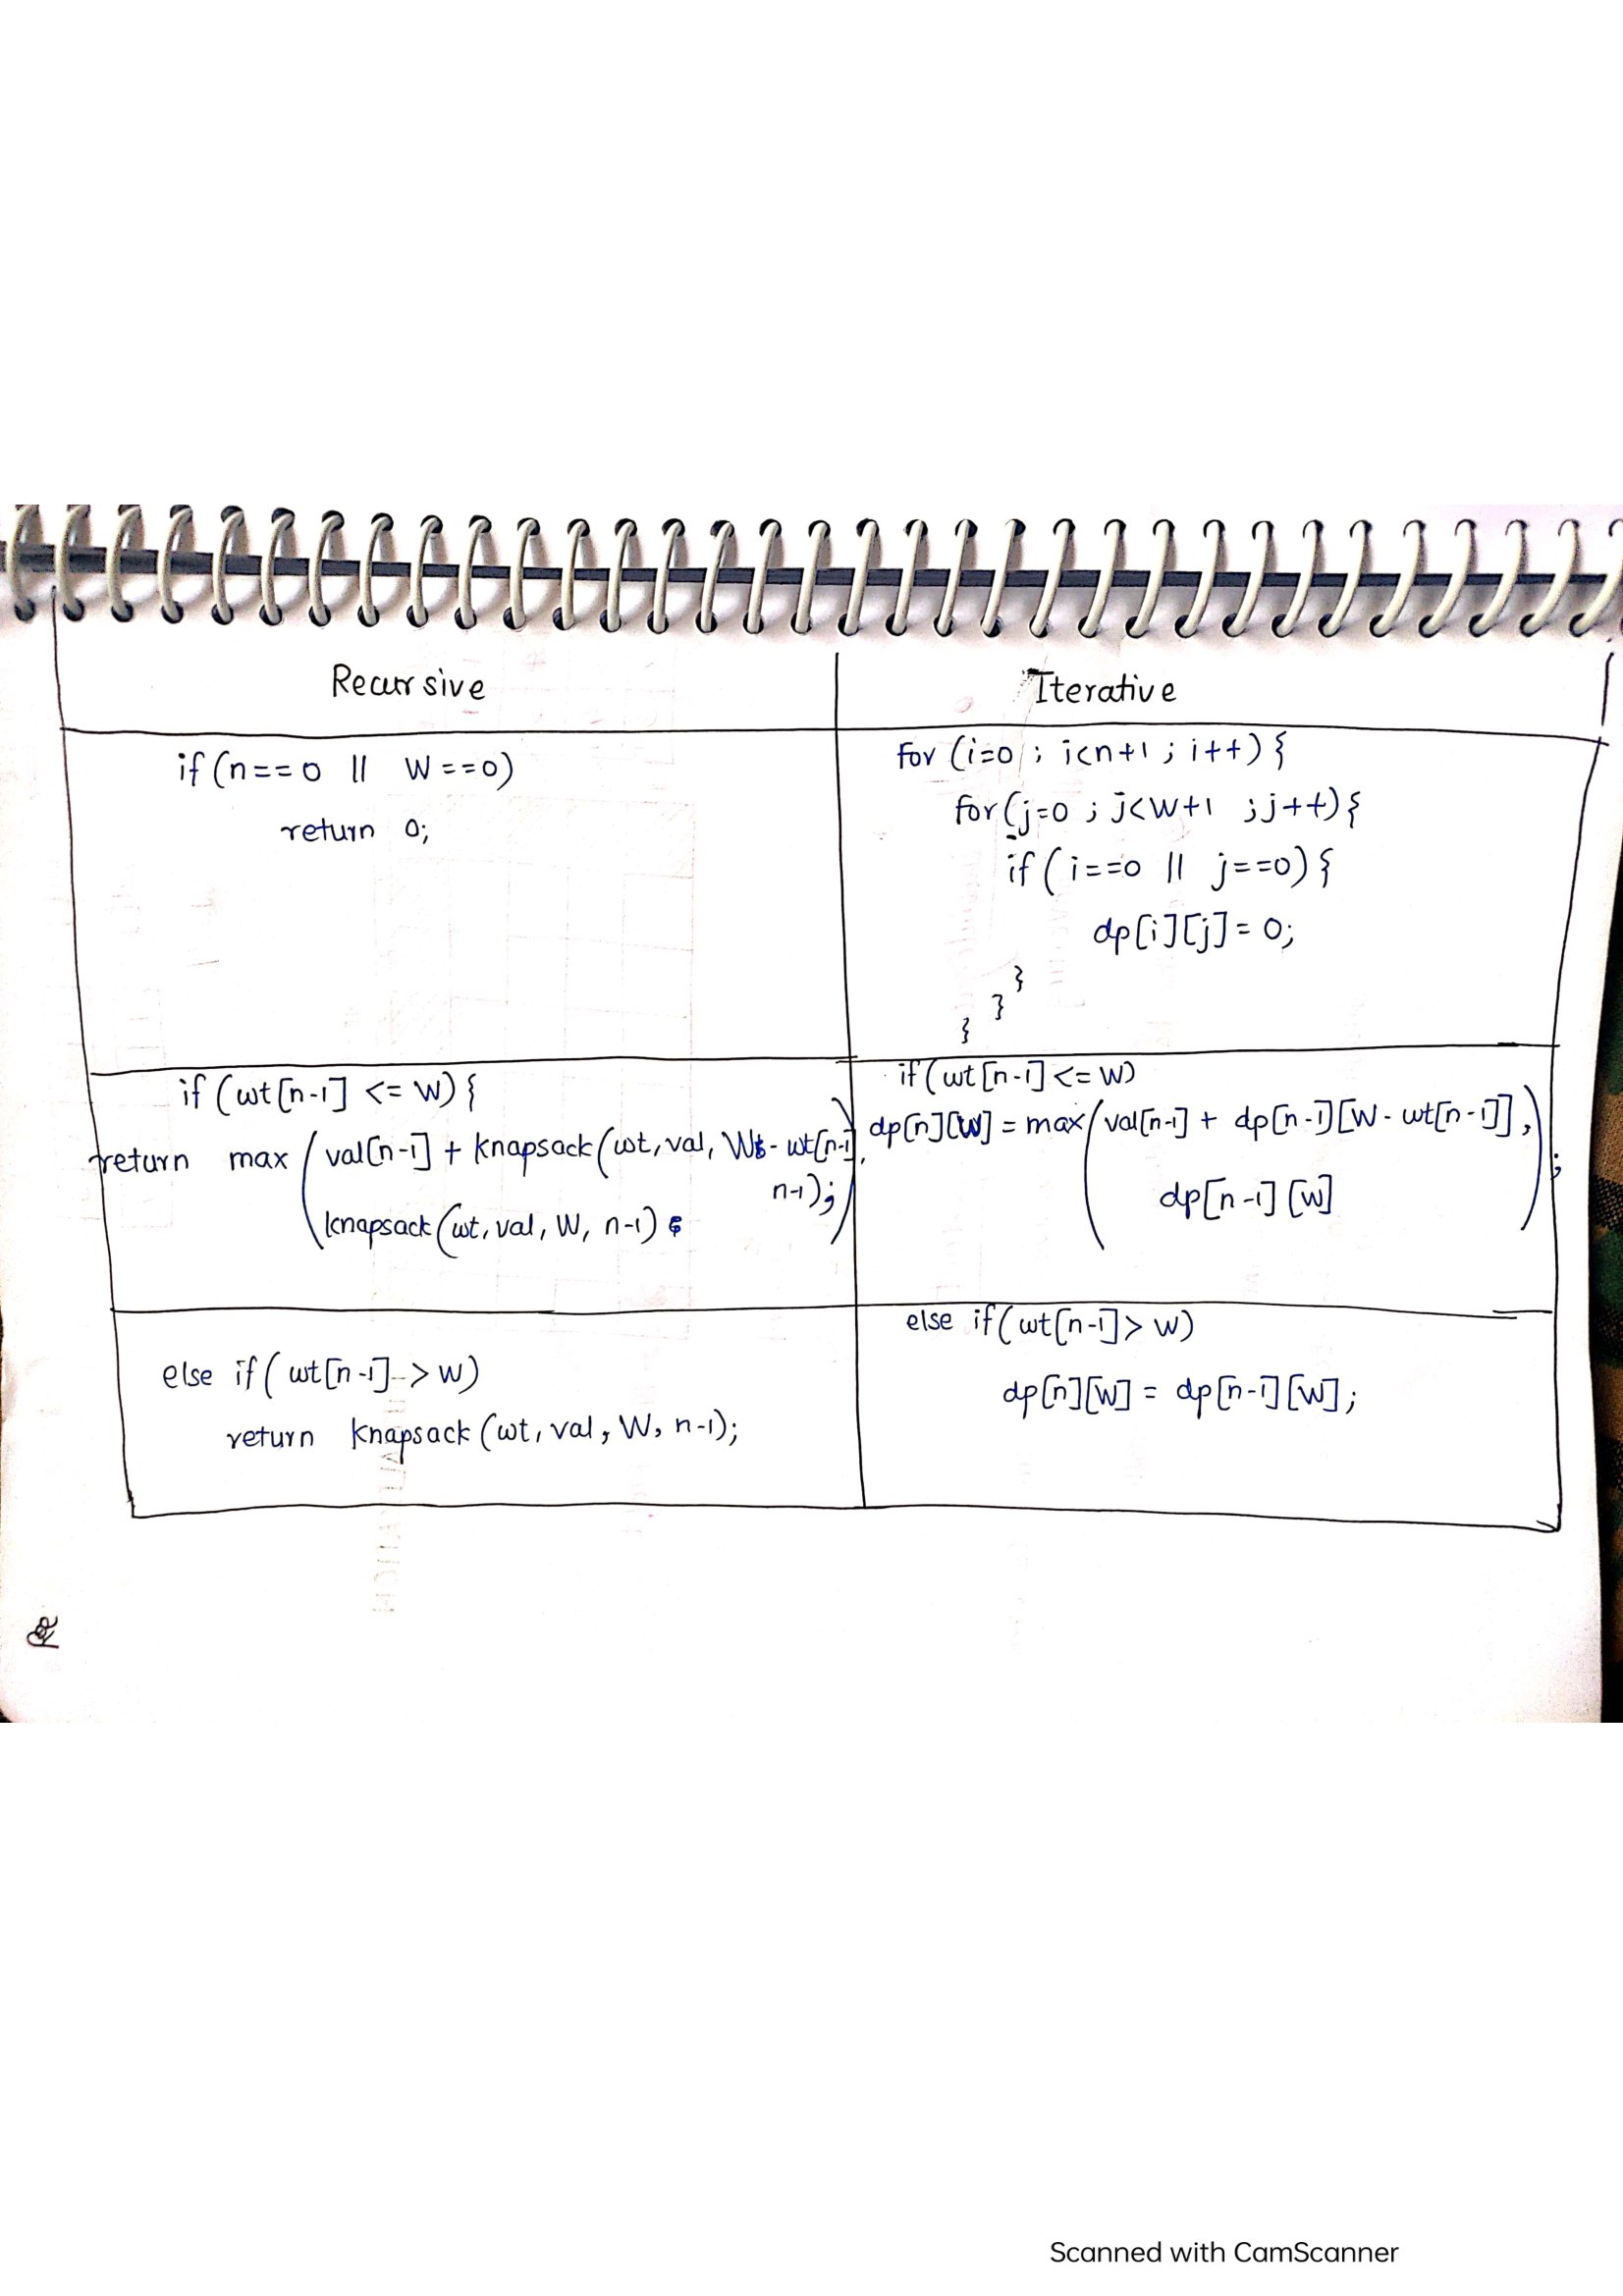 Recursive
Iterative
if (n==0 || W==0)
return 0;
for (i=0 ; i<n+1 ; i++) {
for (j=0 ; j<W+1 ; j++) {
if (i==0 || j==0) {
dp[i][j] = 0;
}
}
}
if (wt[n-1] <= W) {
return max ( val[n-1] + knapsack (wt, val, W - wt[n-1],
n-1);
knapsack (wt, val, W, n-1) )
if (wt[n-1] <= W)
dp[n][W] = max ( val[n-1] + dp[n-1][W - wt[n-1]],
dp[n-1][W] ) ;
else if (wt[n-1] > W)
return knapsack (wt, val, W, n-1);
else if (wt[n-1] > W)
dp[n][W] = dp[n-1][W];
Scanned with CamScanner